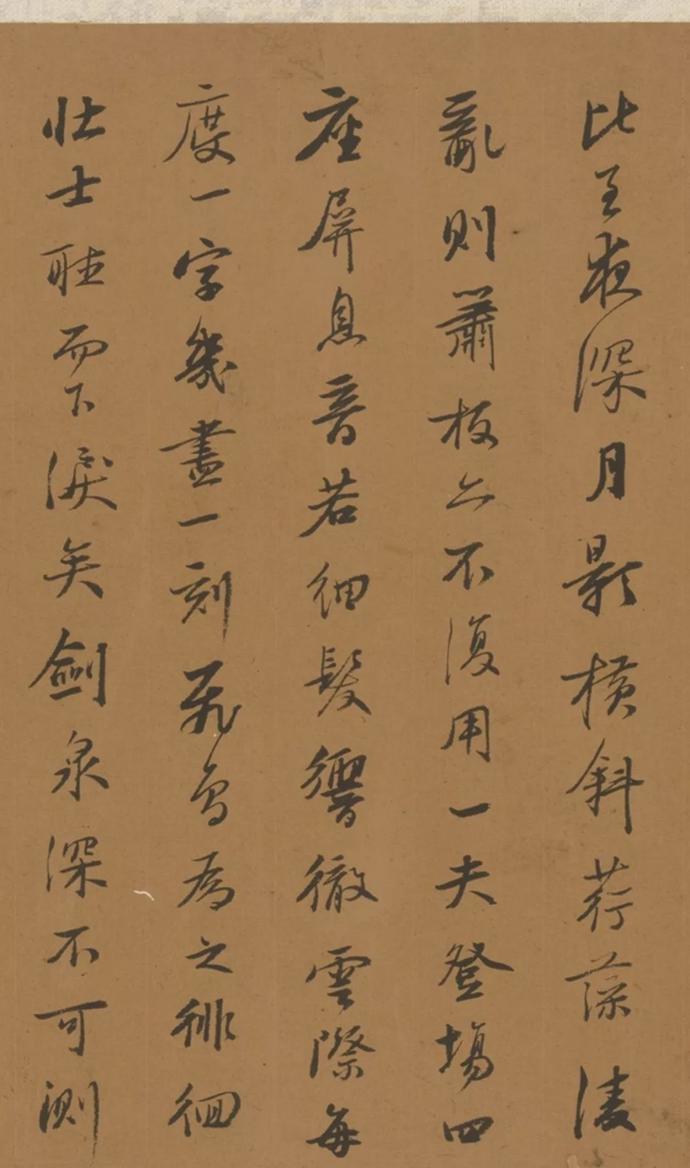 比至夜深月影橫斜荇藻淩
亂則簫板亦不復用一夫登場四
座屏息音若細髮響徹雲際每
度一字幾盡一刻飛鳥為之徘徊
壯士聽而下淚矣劍泉深不可測